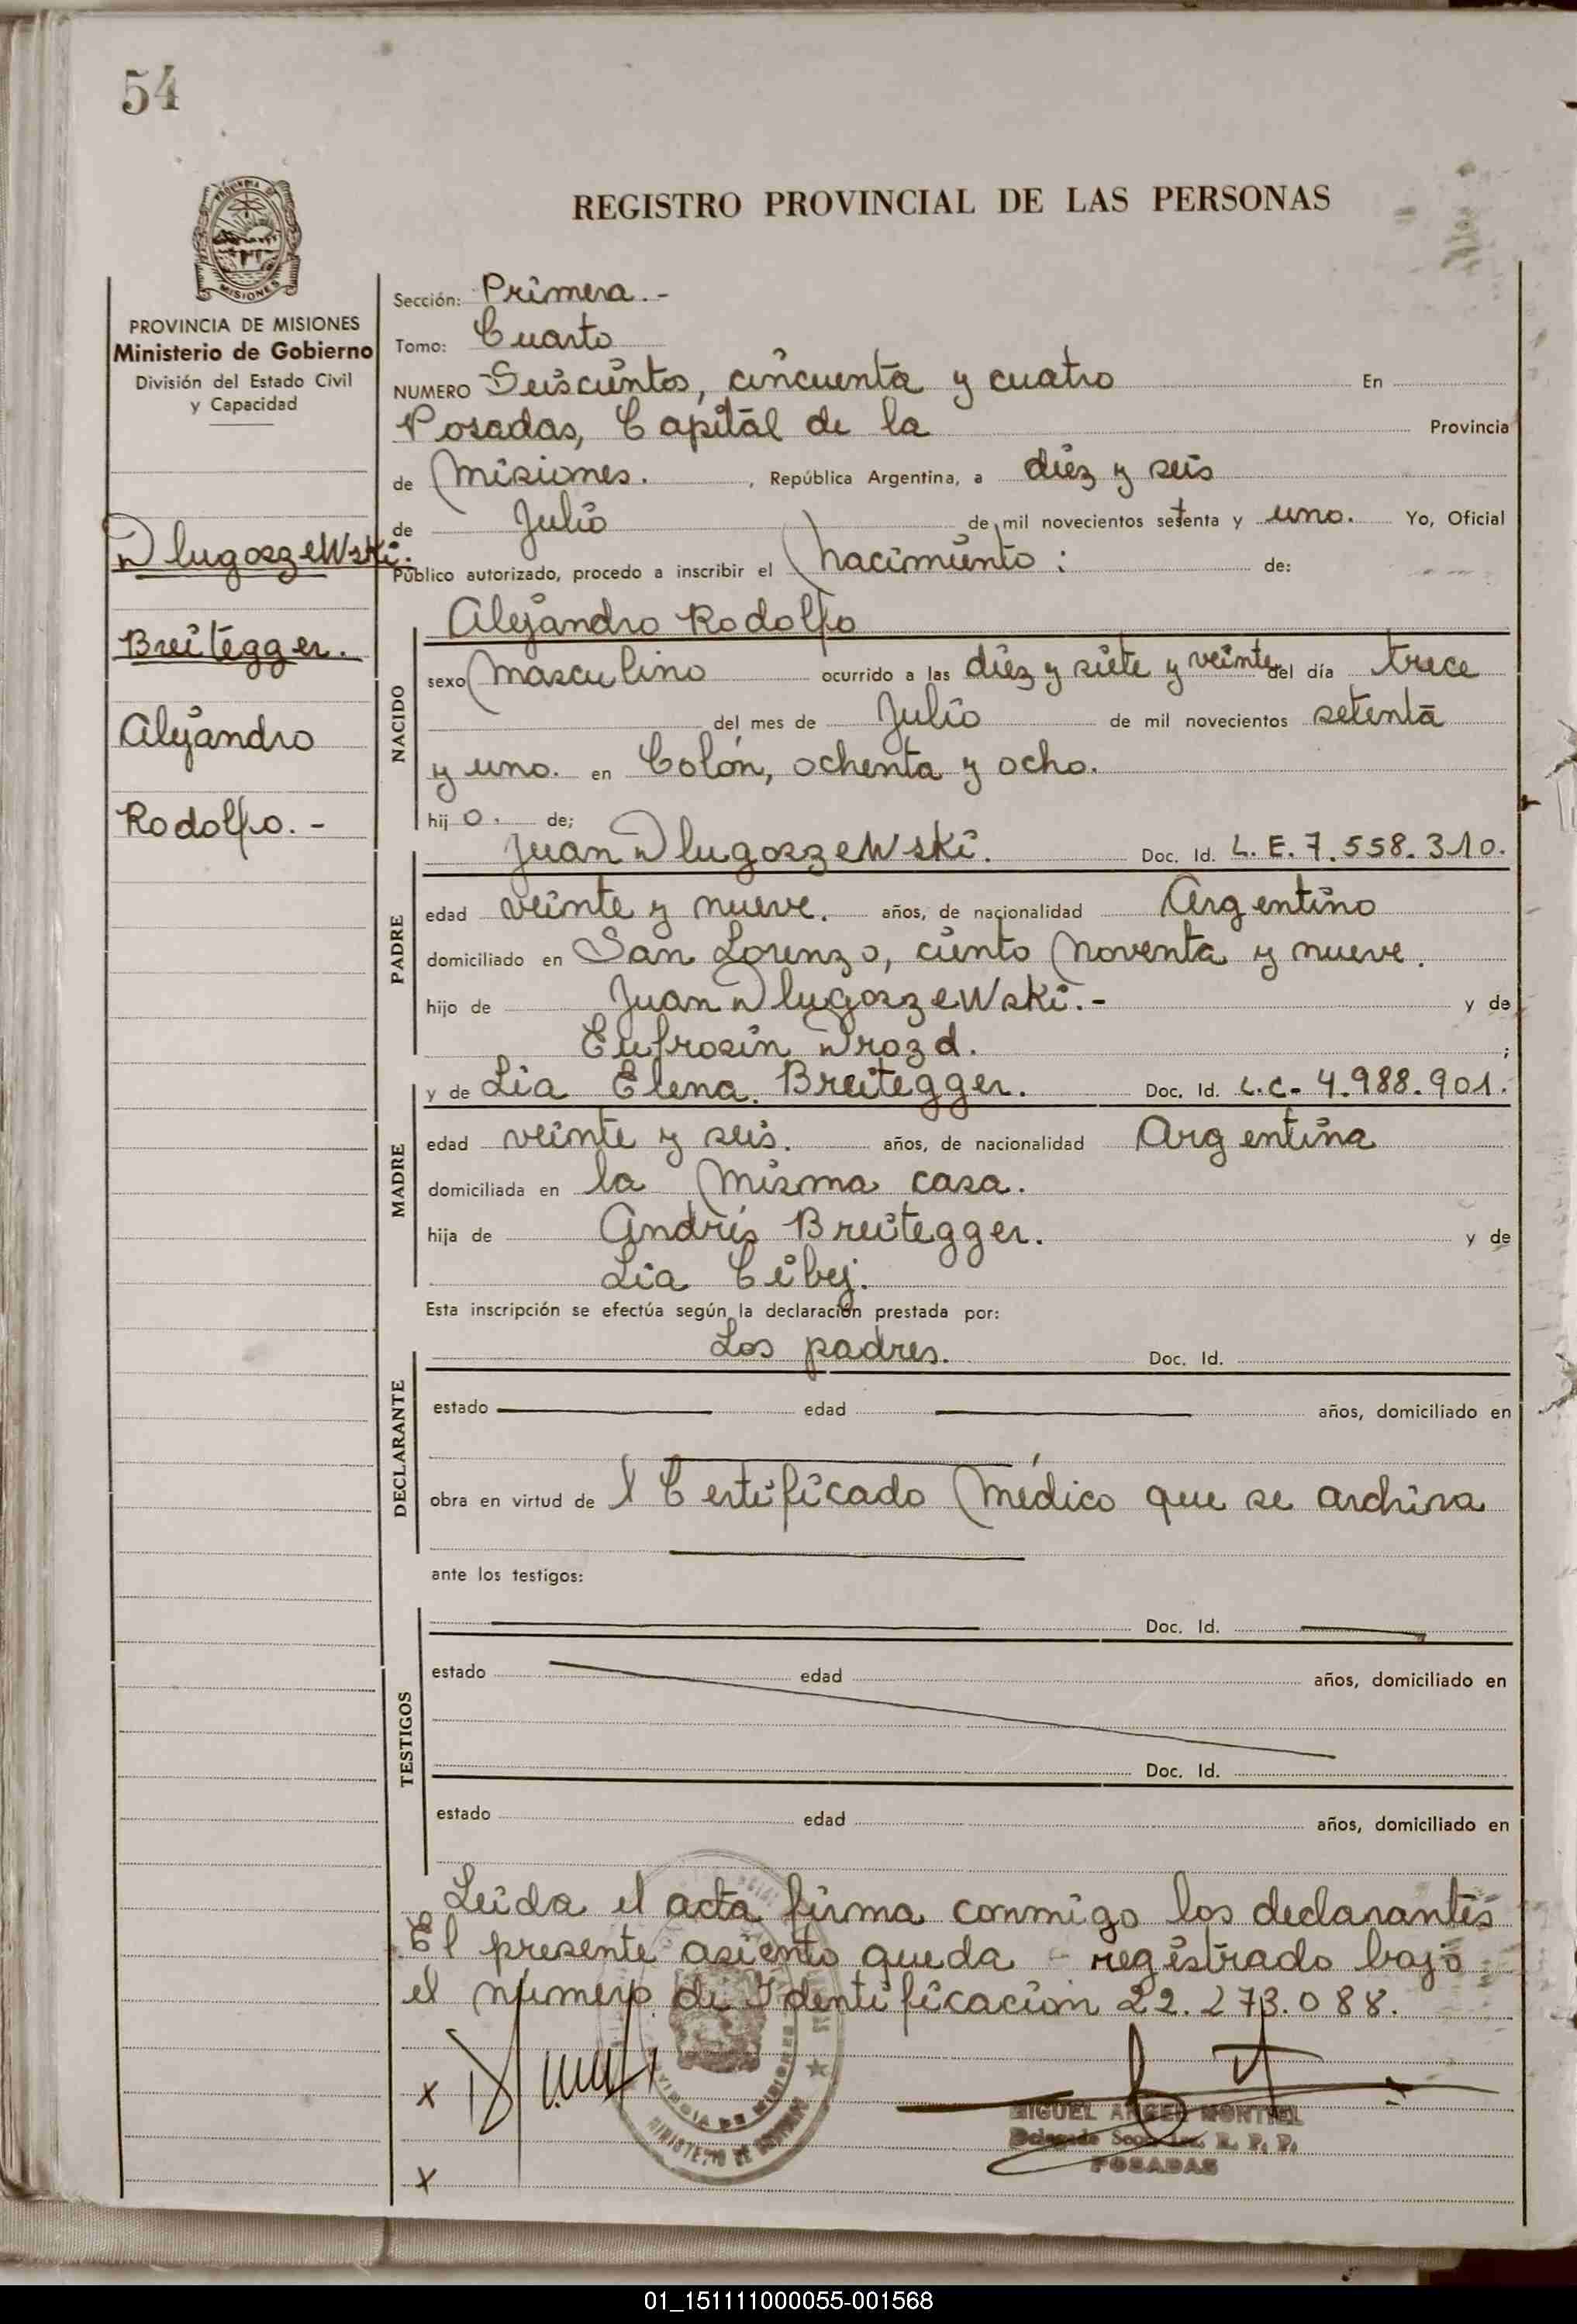 54
REGISTRO PROVINCIAL DE LAS PERSONAS
PROVINCIA DE MISIONES
MISIONES
PROVINCIA DE MISIONES
Ministerio de Gobierno
División del Estado Civil
y Capacidad
Dlugoszewski.
Breitegger.
Alejandro
Rodolfo. -
Sección: Primera. -
Tomo: Cuarto
NUMERO Seiscientos, cincuenta y cuatro En
Posadas, Capital de la Provincia
de Misiones. , República Argentina, a diez y seis
de Julio de mil novecientos setenta y uno. Yo, Oficial
Público autorizado, procedo a inscribir el Nacimiento: de:
NACIDO
Alejandro Rodolfo
sexo Masculino ocurrido a las diez y siete y veinte del día trece
del mes de Julio de mil novecientos setenta
y uno. en Colón, ochenta y ocho.
hij o. de;
PADRE
Juan Dlugoszewski. Doc. Id. L. E. 7.558.310.
edad veinte y nueve. años, de nacionalidad Argentino
domiciliado en San Lorenzo, ciento Noventa y nueve.
hijo de Juan Dlugoszewski. - y de
Eufrosin Drozd. ;
MADRE
y de Lia Elena. Breitegger. Doc. Id. L.C- 4.988.901.
edad veinte y seis. años, de nacionalidad Argentina
domiciliada en la Misma casa.
hija de Andrés Breitegger. y de
Lia Cibej.
Esta inscripción se efectúa según la declaración prestada por:
DECLARANTE
Los padres. Doc. Id.
estado edad años, domiciliado en
obra en virtud de l Certificado Médico que se archiva
ante los testigos:
TESTIGOS
Doc. Id.
estado edad años, domiciliado en
Doc. Id.
estado edad años, domiciliado en
Leida el acta firma conmigo los declarantes
El presente asiento queda registrado bajo
el número de Identificación 22.273.088.
x
MIGUEL ANGEL MONTIEL
Delegado R. P. P.
POSADAS
x
MINISTERIO DE GOBIERNO
PROVINCIA DE MISIONES
01_151111000055-001568